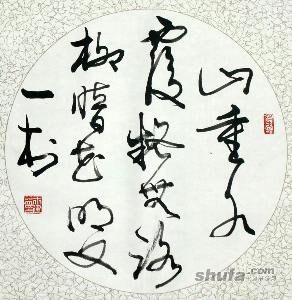 山重水
覆疑无路
柳暗花明又
一村
shufa.com